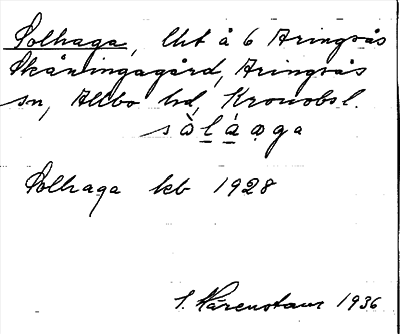 Solhaga, lht å 6 Aringsås
Skåningagård, Aringsås
sn, Allbo hd, Kronobsl.
sòláǫga
Solhaga kb 1928
S. Härenstam 1936